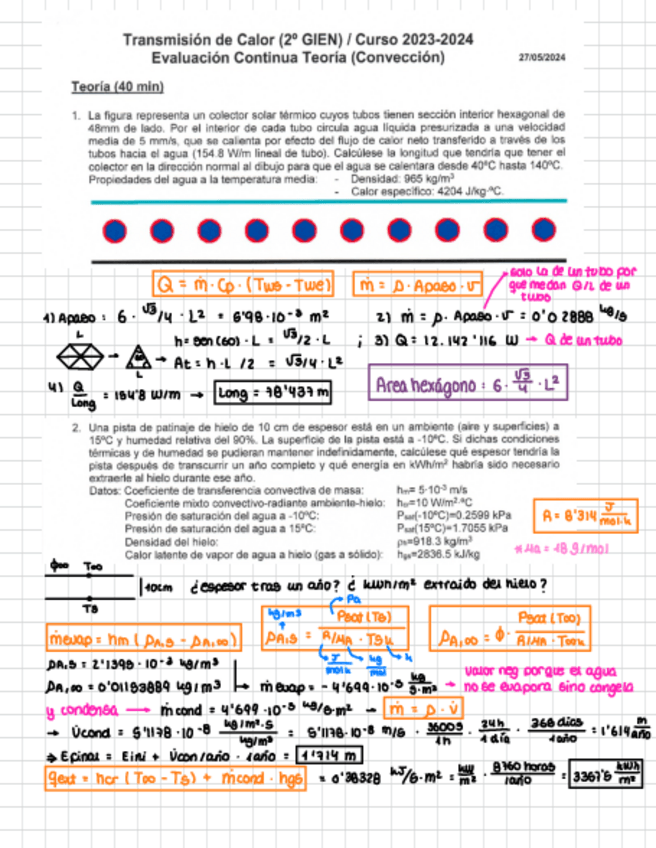 Transmisión de Calor (2º GIEN) / Curso 2023-2024
Evaluación Continua Teoría (Convección) 27/05/2024
Teoría (40 min)
1. La figura representa un colector solar térmico cuyos tubos tienen sección interior hexagonal de
48mm de lado. Por el interior de cada tubo circula agua líquida presurizada a una velocidad
media de 5 mm/s, que se calienta por efecto del flujo de calor neto transferido a través de los
tubos hacia el agua (154.8 W/m lineal de tubo). Calcúlese la longitud que tendría que tener el
colector en la dirección normal al dibujo para que el agua se calentara desde 40ºC hasta 140ºC.
Propiedades del agua a la temperatura media: - Densidad: 965 kg/m³
- Calor específico: 4204 J/kg·ºC.
Q = ṁ · Cp · (Tws - Twe) ṁ = ρ · Apaso · v
solo la de un tubo por
que me dan Q/L de un
tubo
1) Apaso : 6 · √3/4 · L² = 6'98·10⁻³ m² 2) ṁ = ρ · Apaso · v = 0'02888 kg/s
L
h = sen(60) · L = √3/2 · L ; 3) Q = 12.142'116 W → Q de un tubo
At = h · L /2 = √3/4 · L²
L
4) Q/Long = 154'8 W/m → Long = 78'437 m
Area hexágono : 6 · √3/4 · L²
2. Una pista de patinaje de hielo de 10 cm de espesor está en un ambiente (aire y superficies) a
15ºC y humedad relativa del 90%. La superficie de la pista está a -10ºC. Si dichas condiciones
térmicas y de humedad se pudieran mantener indefinidamente, calcúlese qué espesor tendría la
pista después de transcurrir un año completo y qué energía en kWh/m² habría sido necesario
extraerle al hielo durante ese año.
Datos: Coeficiente de transferencia convectiva de masa: hm= 5·10⁻³ m/s
Coeficiente mixto convectivo-radiante ambiente-hielo: hcr=10 W/m²·ºC
Presión de saturación del agua a -10ºC: Psat(-10ºC)=0.2599 kPa
Presión de saturación del agua a 15ºC: Psat(15ºC)=1.7055 kPa
Densidad del hielo: ρh=918.3 kg/m³
Calor latente de vapor de agua a hielo (gas a sólido): hgs=2836.5 kJ/kg
R = 8'314 J/mol·k
* Ma = 18 g/mol
ϕ∞ T∞
10cm ¿espesor tras un año? ¿ kWh/m² extraido del hielo?
Ts
kg/m³ Pa
ṁevap = hm ( ρA,s - ρA,∞) ρA,s = Psat(Ts) / R/MA · Ts k ρA,∞ = ϕ · Psat(T∞) / R/MA · T∞k
J/mol·k kg/mol k
ρA,s = 2'1398 · 10⁻³ kg/m³
ρA,∞ = 0'01153889 kg/m³ → ṁevap = -4'699·10⁻⁵ kg/s·m² → valor neg porque el agua
no se evapora sino congela
y condensa → ṁcond = 4'699·10⁻⁵ kg/s·m² → ṁ = ρ · v̇
→ v̇cond = 5'1178 · 10⁻⁸ kg/m²·s / kg/m³ = 5'1178·10⁻⁸ m/s · 3600s/1h · 24h/1día · 365 días/1año = 1'614 m/año
⇒ Efinal = Eini + v̇con/año · 1año = 1'714 m
qext = hcr (T∞ - Ts) + ṁcond · hgs = 0'38328 kJ/s·m² = kW/m² · 8760 horas/1año = 3357'5 kWh/m²